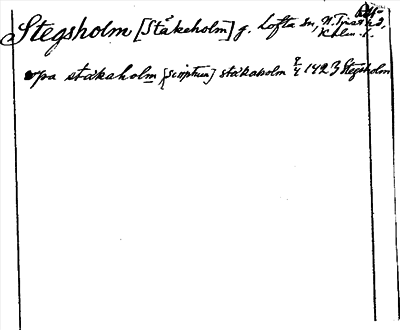 Stegsholm [Stäkeholm] g. Lofta sn, N. Tjust hd,
Kalm. l.
vpa stäkaholm [scriptum] stäkaholm 9/4 1423 Stegsholm